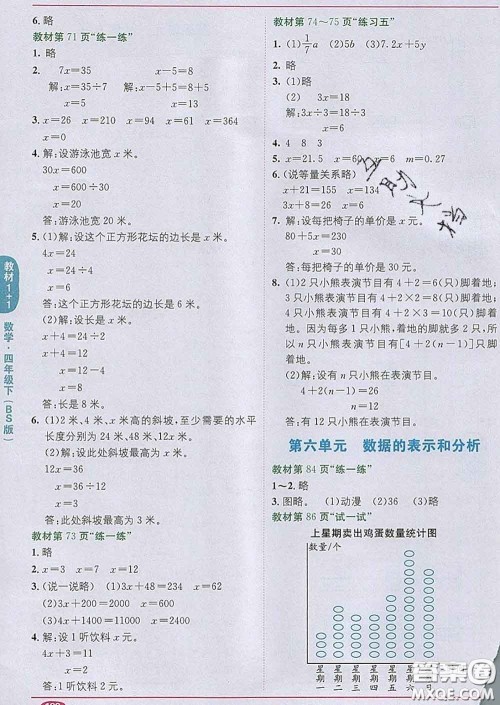 6. 略
教材第71页“练一练”
1. 略
2. 7x=35 x-5=8
解:x=35÷7 解:x-5+5=8+5
x=5 x=13
3. x=26 x=210 x=94 x=61 x=364
x=0
4. 解:设游泳池宽 x 米。
30x=600
x=600÷30
x=20
答:游泳池宽 20 米。
5. (1)解:设这个正方形花坛的边长是 x 米。
4x=24
x=24÷4
x=6
答:这个正方形花坛的边长是 6 米。
(2)解:设长是 x 米。
x+4=24÷2
x+4=12
x+4-4=12-4
x=8
答:长是 8 米。
6. (1)2 米、4 米、x 米高的斜坡,至少需要的水平
长度分别为 24 米、48 米、12x 米。
(2)解:设此处斜坡最高为 x 米。
12x=36
x=36÷12
x=3
答:此处斜坡最高为 3 米。
教材第73页“练一练”
1. 略
2. x=3 x=7 x=7 x=132
3. (说一说略) (1)3x+48=234 x=62
(2)3x+200=2000 x=600
(3)4x-400=2000 x=600
4. 解:设 1 听饮料 x 元。
x=2
答:1 听饮料 2 元。
教材第74~75页“练习五”
1. (1)1/7a (2)5b (3)7.2x+5y
2. 略
3. (1)略
(2) 3x=18
解:3x÷3=18÷3
x=6
4. 4 8 3
5. x=21.5 x=60 x=6 m=0.27
6. (说等量关系略)
x+21=155 x=134
3x-6=111 x=39
7. 解:设每把椅子的单价是 x 元。
80+5x=230
x=30
答:每把椅子的单价是 30 元。
8. (1)2 只小熊表演节目有 4+2=6(只)脚着地;
3 只小熊表演节目有 4+2×2=8(只)脚着地;
4 只小熊表演节目有 4+2×3=10(只)脚着
地。因为每增加 1 只小熊,着地的脚就多 2 只,
所以 n 只小熊表演节目有[4+2(n-1)]只脚
着地。
(2)解:设有 n 只小熊在表演节目。
4+2(n-1)=24
n=11
答:有 11 只小熊在表演节目。
第六单元 数据的表示和分析
教材第84页“练一练”
1~2. 略
3. 图略。 (1)动漫 (2)36 (3)略
教材第86页“试一试”
上星期卖出鸡蛋数量统计图
数量/个
星期一 星期二 星期三 星期四 星期五 星期六 星期日
教材1+1
数学·四年级下(BS版)
答案圈
MXQE.COM